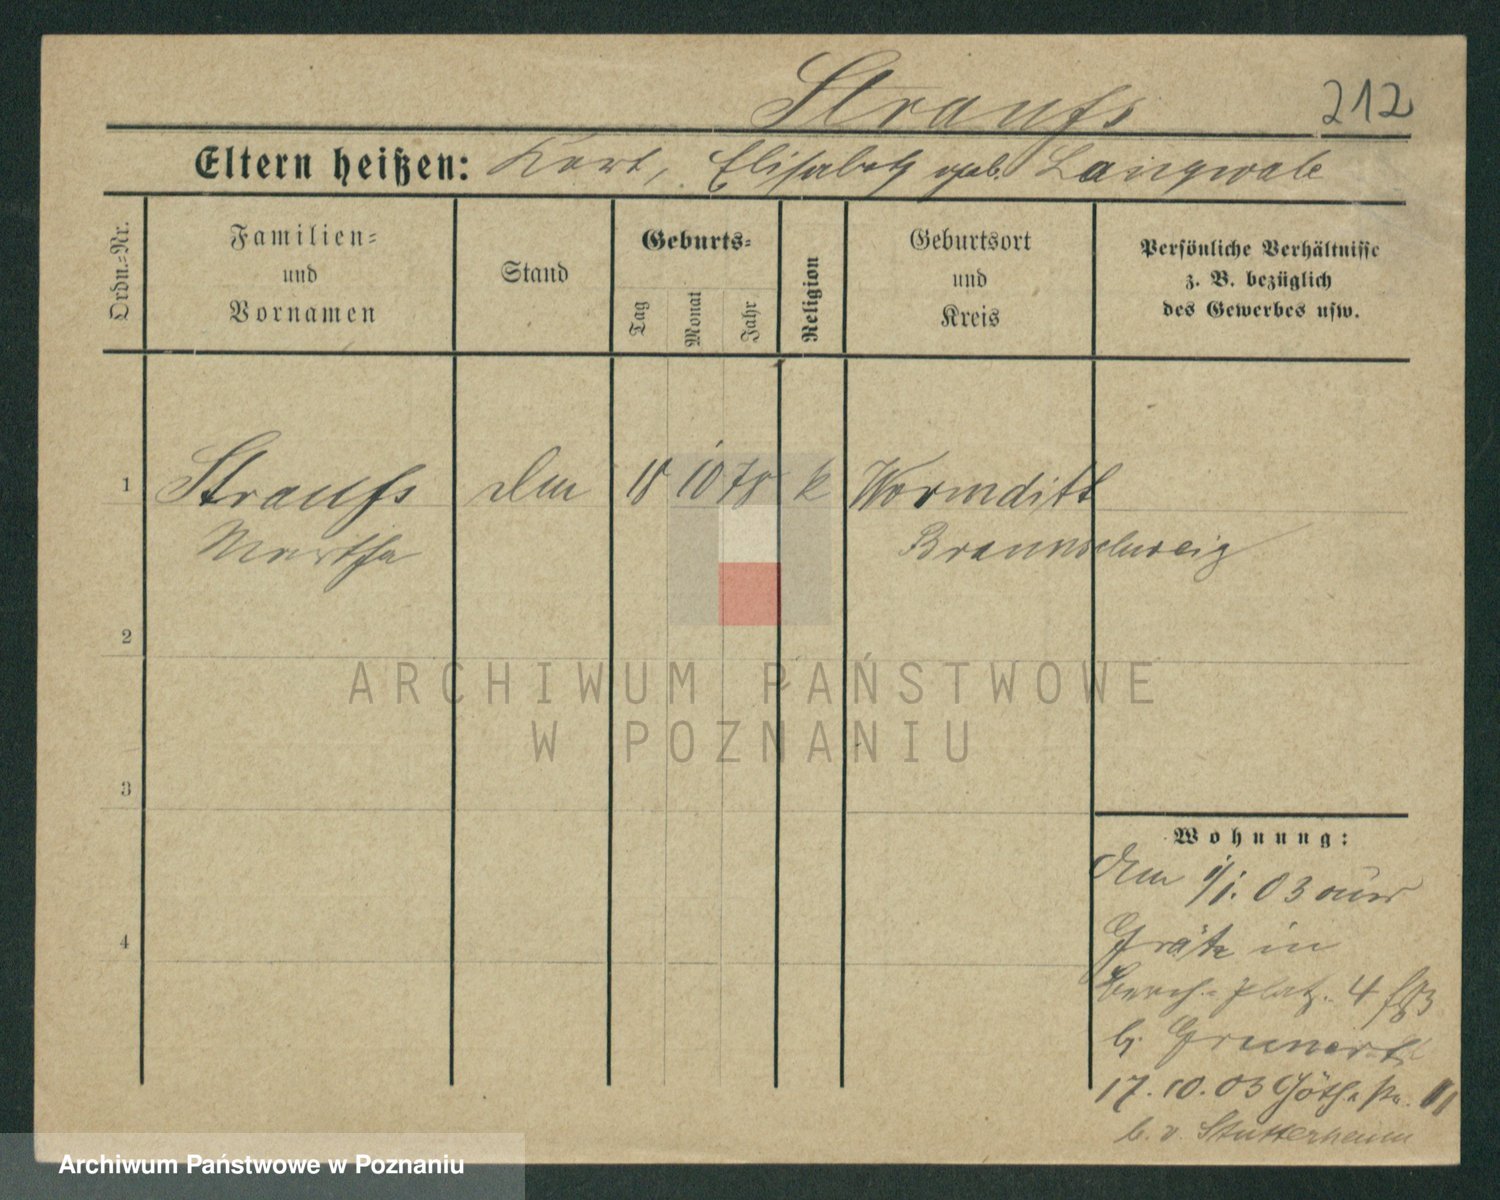 Straufs
212
Eltern heißen: Karl, Elisabeth geb. Langwald
Ordn.-Nr.
Familien-
und
Vornamen
Stand
Geburts-
Tag
Monat
Jahr
Religion
Geburtsort
und
Kreis
Persönliche Verhältnisse
z. B. bezüglich
des Gewerbes usw.
1 Straufs 18 10 78 k Wormditt
Martha Braunschweig
2
3
4
ARCHIWUM PAŃSTWOWE
W POZNANIU
Wohnung:
1/1. 03 aus
Grätz in
platz. 4
b. Grunert
17. 10. 03 Göthestr. 11
b. v. Stutterheim
Archiwum Państwowe w Poznaniu